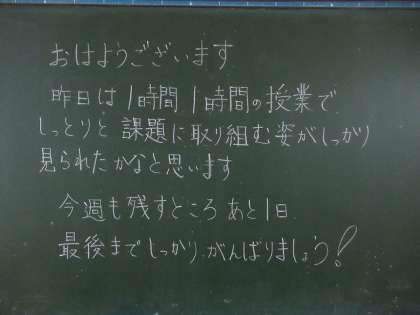 おはようございます
昨日は1時間1時間の授業で
しっとりと課題に取り組む姿がしっかり
見られたかなと思います
今週も残すところあと1日.
最後までしっかりがんばりましょう!